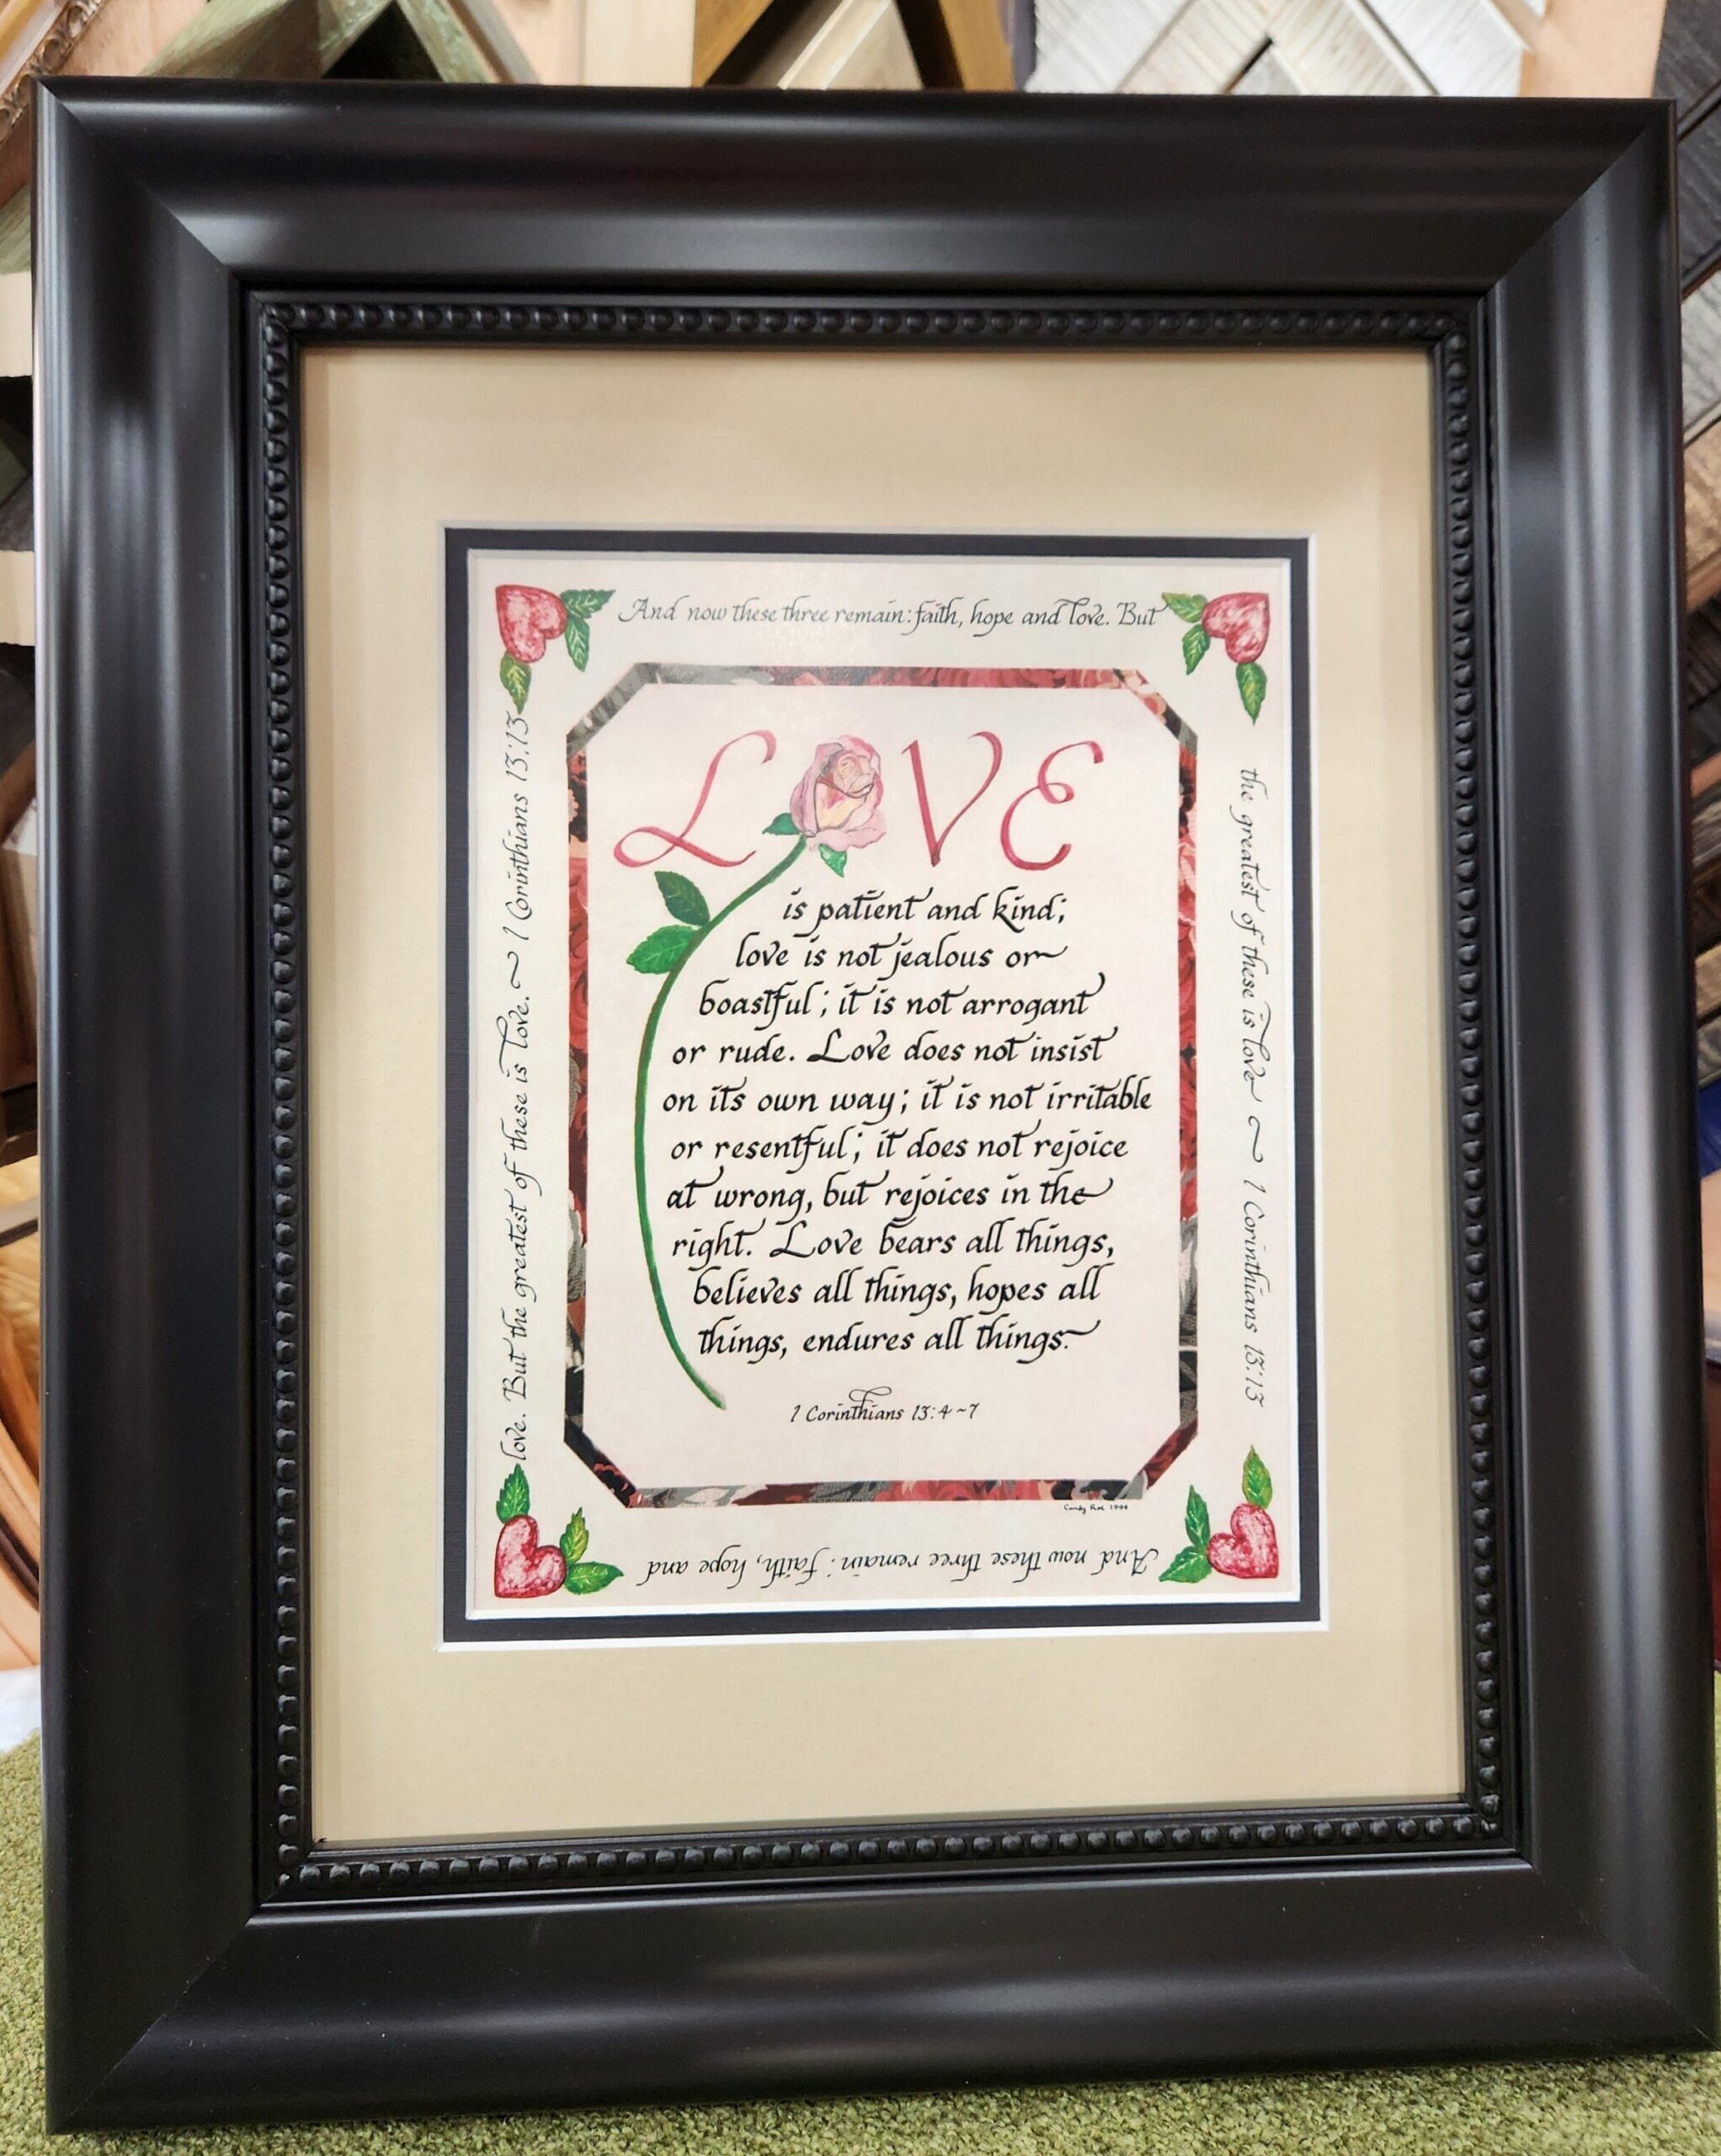 And now these three remain: faith, hope and love. But
the greatest of these is love ~ 1 Corinthians 13:13
And now these three remain: faith, hope and
love. But the greatest of these is love. ~ 1 Corinthians 13:13
LOVE
is patient and kind;
love is not jealous or
boastful; it is not arrogant
or rude. Love does not insist
on its own way; it is not irritable
or resentful; it does not rejoice
at wrong, but rejoices in the
right. Love bears all things,
believes all things, hopes all
things, endures all things.
1 Corinthians 13:4~7